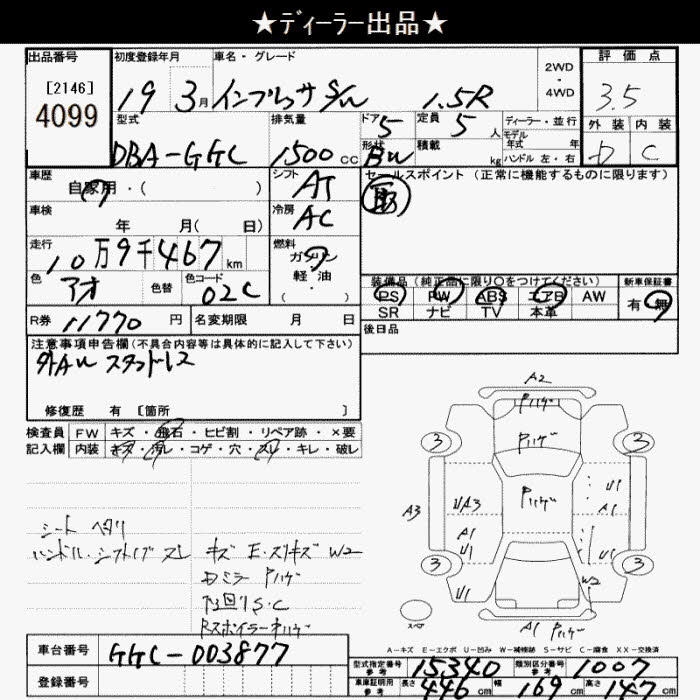 ★ディーラー出品★
出品番号 初度登録年月 車名・グレード 評価点
[2146]
4099
19 3月 インプレッサS/W 1.5R
2WD・4WD
3.5
型式 排気量 ドア 5 定員 5人 ディーラー・並行 外装 内装
モデル年式 年
DBA-GGC 1500CC 形状 BW 積載 kg ハンドル 左・右 D C
車歴 自家用・( ) シフト AT セールスポイント (正常に機能するものに限ります)
車検 年 月( 日) 冷房 AC
走行 10万9千467km 燃料 ガソリン
軽・油
・( )
色 アオ 色替 色コード 02C
装備品 (純正品に限り○をつけてください) 新車保証書
PS PW ABS エアB AW 有・無
SR ナビ TV 本革
R券 11770円 名変期限 月 日
後日品
注意事項申告欄(不具合内容等は具体的に記入して下さい)
外AW スタッドレス
修復歴 有 [箇所 ]
検査員 FW キズ・飛石・ヒビ割・リペア跡・×要
記入欄 内装 キズ・汚レ・コゲ・穴・スレ・キレ・破レ
シート ヘタリ
ハンドル・シフトノブ スレ キズ E・スリキズ W2
Dミラー Pハゲ
下回りS・C
Rスポイラー Pハゲ
A2
Pハゲ
3 Pハゲ 3
Pハゲ U1
A3 UA3 A1
A1
U1 U1
3 3
U1 W2
スペア
A1 Pハゲ
A-キズ E-エクボ U-凹み W-補修跡 S-サビ C-腐食 XX-交換済
車台番号 GGC-003877
登録番号
型式指定番号 参考 15340 類別区分番号 参考 1007
車庫証明用 参考 長さ 446cm 幅 169cm 高さ 147cm